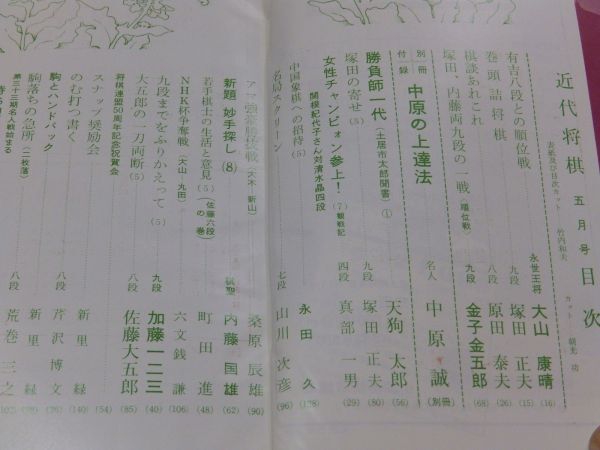 近代将棋 五月号 目次
表紙及び目次カット 竹内和夫
有吉八段との順位戦 永世王将 大山康晴 (16)
巻頭詰将棋 九段 塚田正夫 (15)
棋談あれこれ 八段 原田泰夫 (26)
塚田、内藤両九段の一戦(順位戦) 九段 金子金五郎 (68)
別冊付録 中原の上達法 名人 中原誠 (別冊)
勝負師一代(土居市太郎聞書)(1) 天狗太郎 (56)
塚田の寄せ(5) 九段 塚田正夫 (80)
女性チャンピオン参上!(7)観戦記 四段 真部一男 (29)
関根紀代子さん対清水晶四段
中国象棋への招待(5) 永田久 (128)
名局スクリーン 七段 山川次彦 (96)
アマ強豪勝抜戦(大木 新山) 桑原辰雄 (90)
新題 妙手探し(8) 棋聖 内藤国雄 (62)
若手棋士の生活と意見(5)(佐藤六段の巻) 町田進 (48)
NHK杯争奪戦(大山 丸田) 六文銭謙 (106)
九段までをふりかえって(5) 九段 加藤一二三 (40)
大五郎の一刀両断(5) 八段 佐藤大五郎 (85)
将棋連盟50周年記念祝賀会 (54)
スナップ奨励会 新里緑 (140)
のむ打つ書く 八段 芹沢博文
駒とハンドバック 新里緑
駒落ちの急所(二枚落) 八段 荒巻三之
第三十三期名人戦始まる